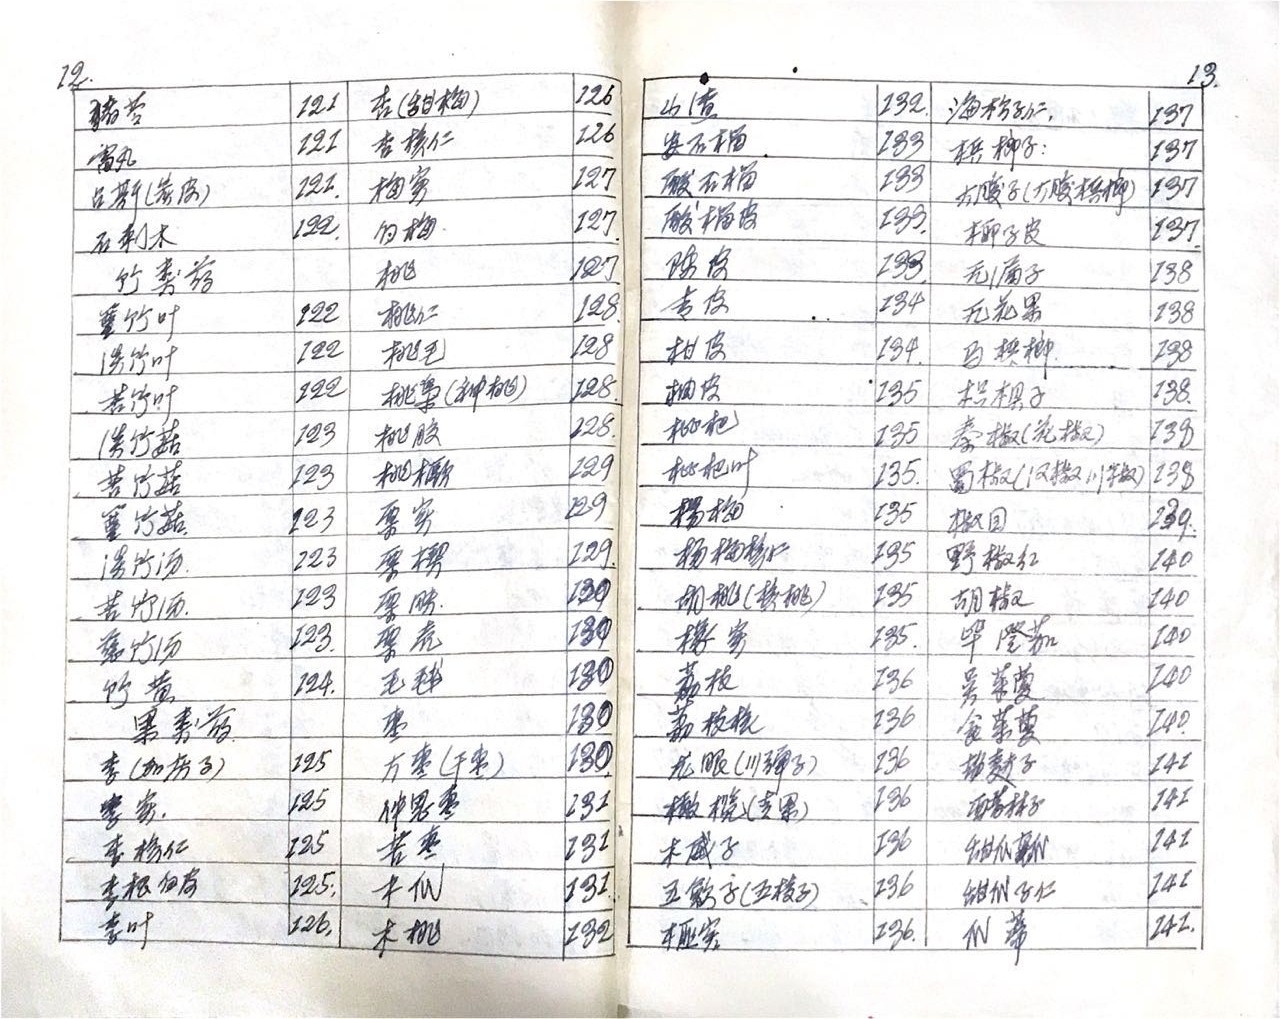 12.
猪苓 121 杏(甜梅) 126
雷丸 121 杏核仁 126
121. 梅实 127
石刺木 122. 白梅 127.
竹 类 药 桃 127
篁竹叶 122 桃仁 128.
淡竹叶 122 桃毛 128
苦竹叶 122 桃枭(神桃) 128.
淡竹菇 123 桃胶 128.
苦竹菇 123 桃橛 129
篁竹菇. 123 栗实 129
淡竹沥 123 栗楔 129.
苦竹沥. 123 栗 130
篁竹沥 123. 栗壳 130
竹黄 124. 毛球 130
果 类 药 枣 130
李(加房子) 125 大枣(干枣) 130
李实. 125 仲思枣 131
李核仁 125 苦枣 131
李根白皮 125. 木瓜 131
李叶 126. 木桃 132
13.
山渣 132. 海松子仁. 137
安石榴 133 槟榔子. 137
酸石榴 133 大腹子(大腹槟榔) 137
酸榴皮 133. 椰子皮 137.
陈皮 133 无漏子 138
青皮 134 无花果 138
柑皮 134. 马槟榔. 138
柚皮 135 枳椇子 138.
枇杷 135 秦椒(花椒) 138
枇杷叶 135. 蜀椒(汉椒川椒) 138
杨梅 135 椒目 139.
杨梅核仁 135 野椒红 140
胡桃(核桃) 135 胡椒 140
橡实 135. 毕澄茄 140
荔枝 136 吴茱萸 140
荔枝核 136 食茱萸 140.
龙眼(川弹子) 136 盐麸子 141
橄榄(青果) 136 醋林子 141
木威子 136 甜瓜瓤 141
五敛子(五棱子) 136 甜瓜子仁 141
榧实 136. 瓜蒂 141.